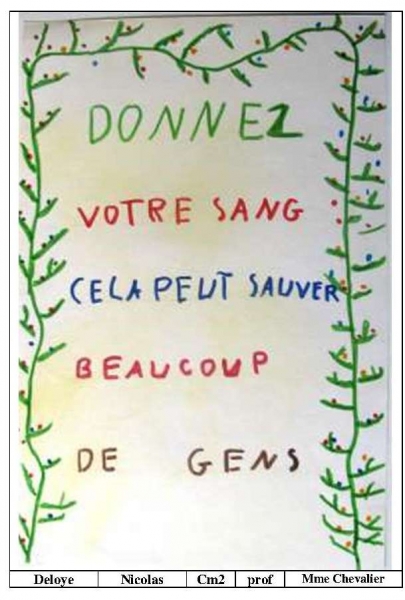 DONNEZ
VOTRE SANG
CELA PEUT SAUVER
BEAUCOUP
DE GENS
Deloye Nicolas Cm2 prof Mme Chevalier